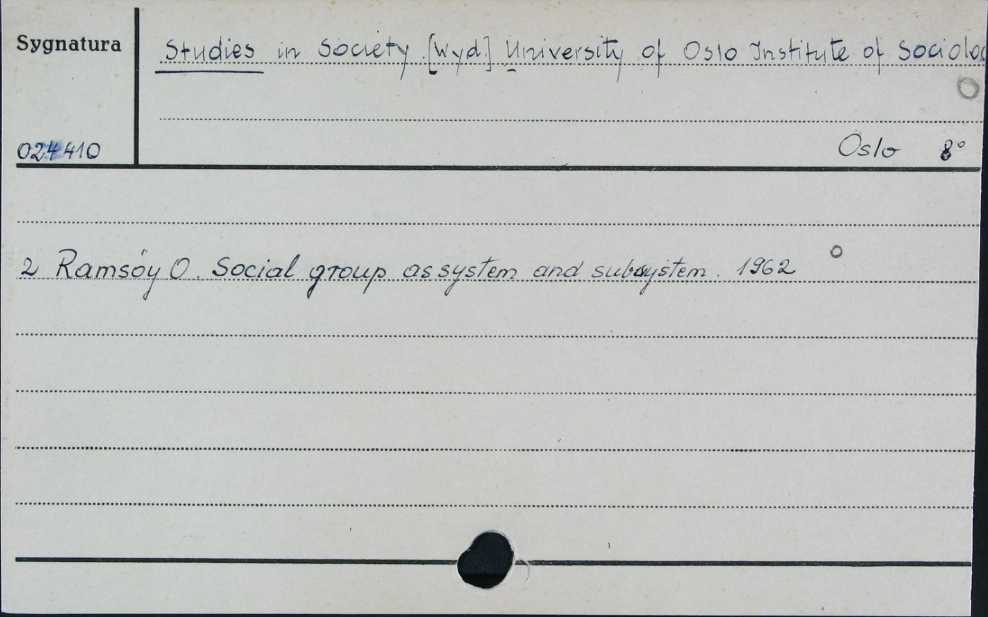 Sygnatura
Studies in Society [Wyd] University of Oslo Institute of Sociolog
024410
Oslo 8°
2 Ramsöy O. Social group as system and subsystem. 1962